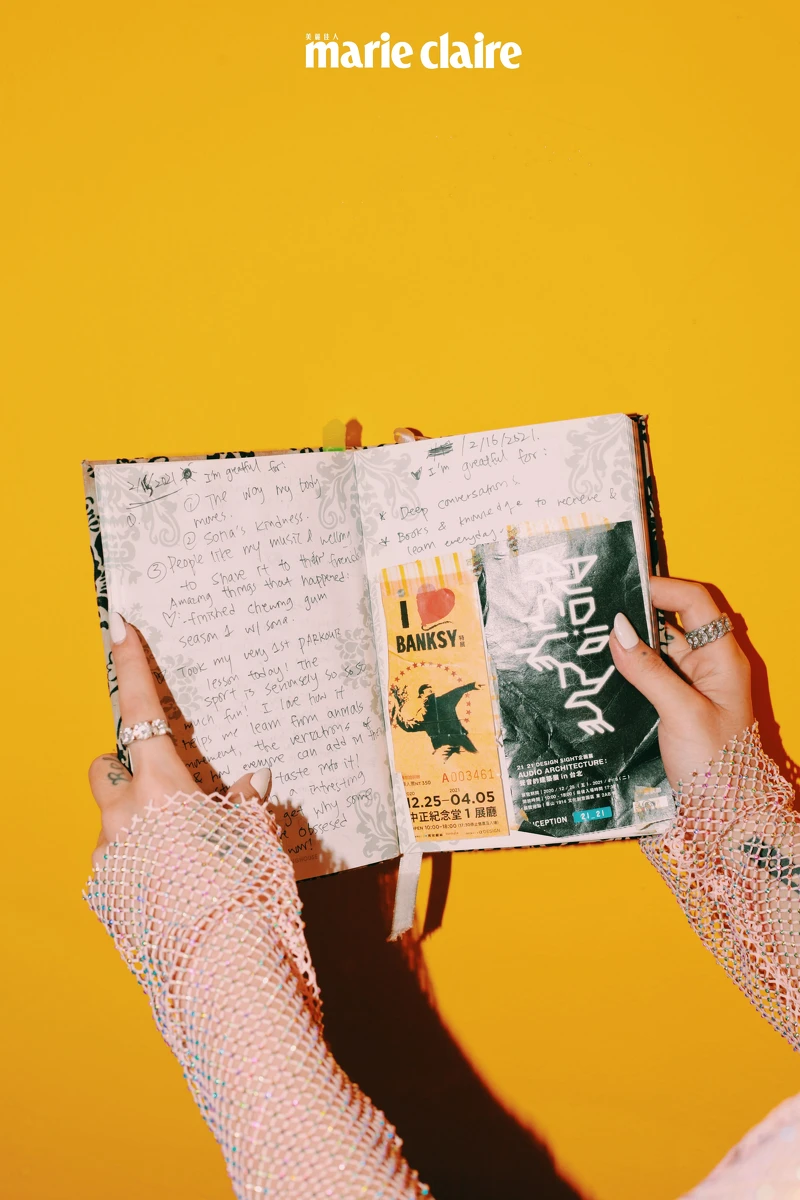 美麗佳人
marie claire
2/15/2021 I'm greatful for:
① The way my body
moves.
② Sona's kindness.
③ People like my music & willing
to share it to their friends
Amazing things that happened:
♡: -finished chewing gum
season 1 w/ sona.
Took my very 1st PARKOUR
lesson today! The
sport is seriously so. so. so
much fun! I love how it
helps me learn from animals
movement, the variations of
& how everyone can add in their
taste into it!
interesting
get why some
obsessed
now!
/2/16/2021.
♥ I'm greatful for:
* Deep conversations
* Books & knowledge to recieve &
learn everyday.
i ♥
BANKSY 特展
A003461
2020 2021
12.25—04.05
中正紀念堂 1 展廳
OPEN 10:00-18:00
AUDIO
21_21 DESIGN SIGHT企画展
AUDIO ARCHITECTURE:
聲音的建築展 in 台北
INCEPTION
21_21